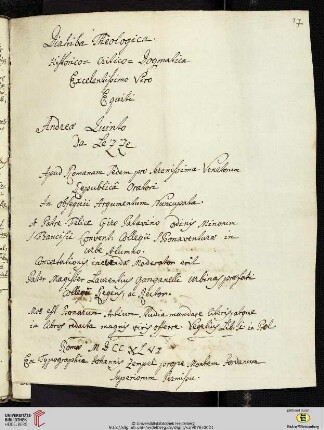 17
Diatriba Theologica.
Historico = Critico = Dogmatica
Excelentissimo Viro
Equiti
Andreæ Quirito
Da LeZZe
Apud Romanam Sedem pro Serenissima Venetorum
Republica Oratori
In obsequii Argumentum Nuncupata
A Patre Felice Giro Patavino ordinis Minorum
S Francisci Convent. Collegii S Bonaventuræ in
urbe Alumno.
Concertationis Moderator erit
Pater Magister Laurentius Ganganelli
Collegii Regens, ac Rector.
Mos est Bonarum Artium studia mandare literis atque
in libros redacta magnis viris offerre Vegetius Lib. I in Pol
Romæ MDCCXLVI
Ex Typographia Iohannis Zempel prope Montem Jordanum
Superiorum Permissu.
UNIVERSITÄTS-
BIBLIOTHEK
HEIDELBERG
© Universitätsbibliothek Heidelberg
gefördert durch